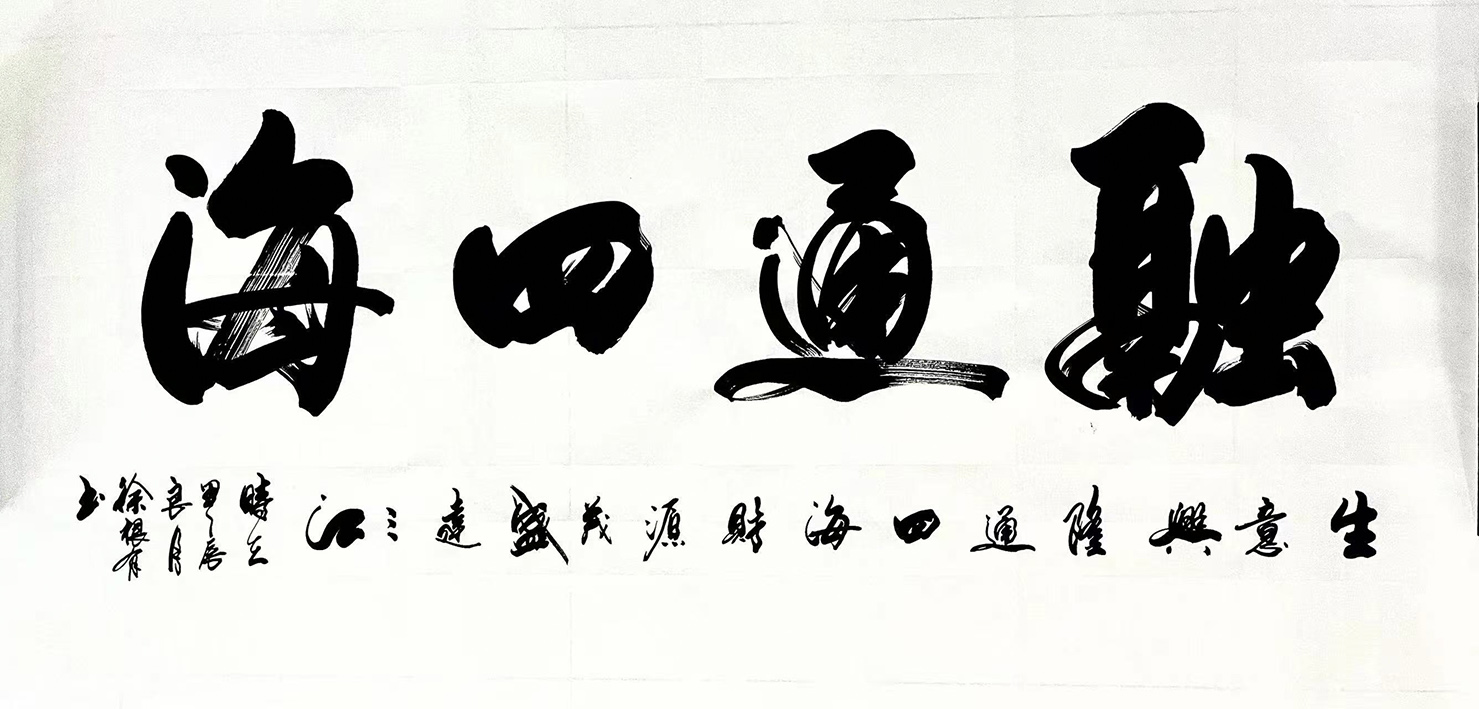 融通四海
生意興隆通四海財源茂盛達三江
時在
甲辰
良月
徐根有
书